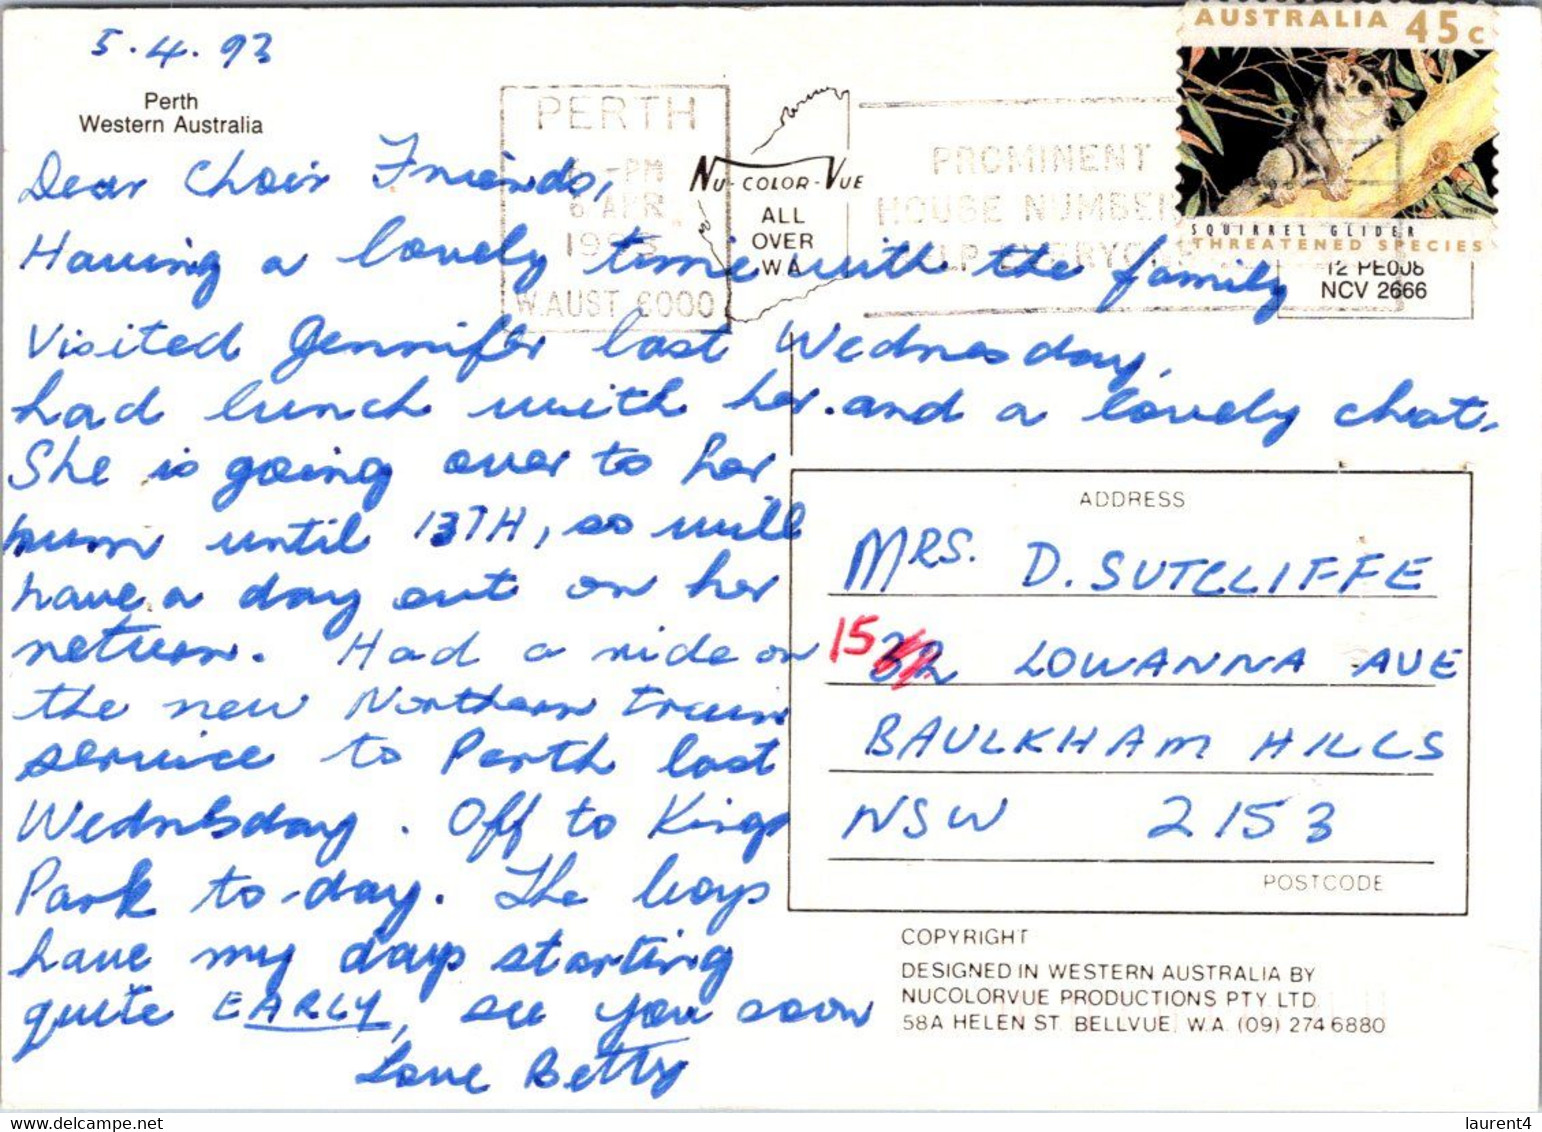 5.4.93
Perth
Western Australia
Dear Choir Friends,
Having a lovely time with the family
Visited Jennifer last Wednesday,
had lunch with her. and a lovely chat.
She is going over to her
mum until 13TH, so will
have a day out on her
return. Had a ride on
the new Northern train
service to Perth last
Wednesday. Off to Kings
Park to-day. The boys
have my days starting
quite EARLY, see you soon
Love Betty
PERTH
-PM
6 APR
1993
W.AUST 6000
NU-COLOR-VUE
ALL
OVER
W.A.
PROMINENT
HOUSE NUMBERS
HELP EVERYONE
AUSTRALIA 45c
SQUIRREL GLIDER
THREATENED SPECIES
12 PE008
NCV 2666
ADDRESS
MRS. D. SUTCLIFFE
15 32 LOWANNA AVE
BAULKHAM HILLS
NSW 2153
POSTCODE
COPYRIGHT
DESIGNED IN WESTERN AUSTRALIA BY
NUCOLORVUE PRODUCTIONS PTY. LTD.
58A HELEN ST. BELLVUE, W.A. (09) 274 6880
laurent4